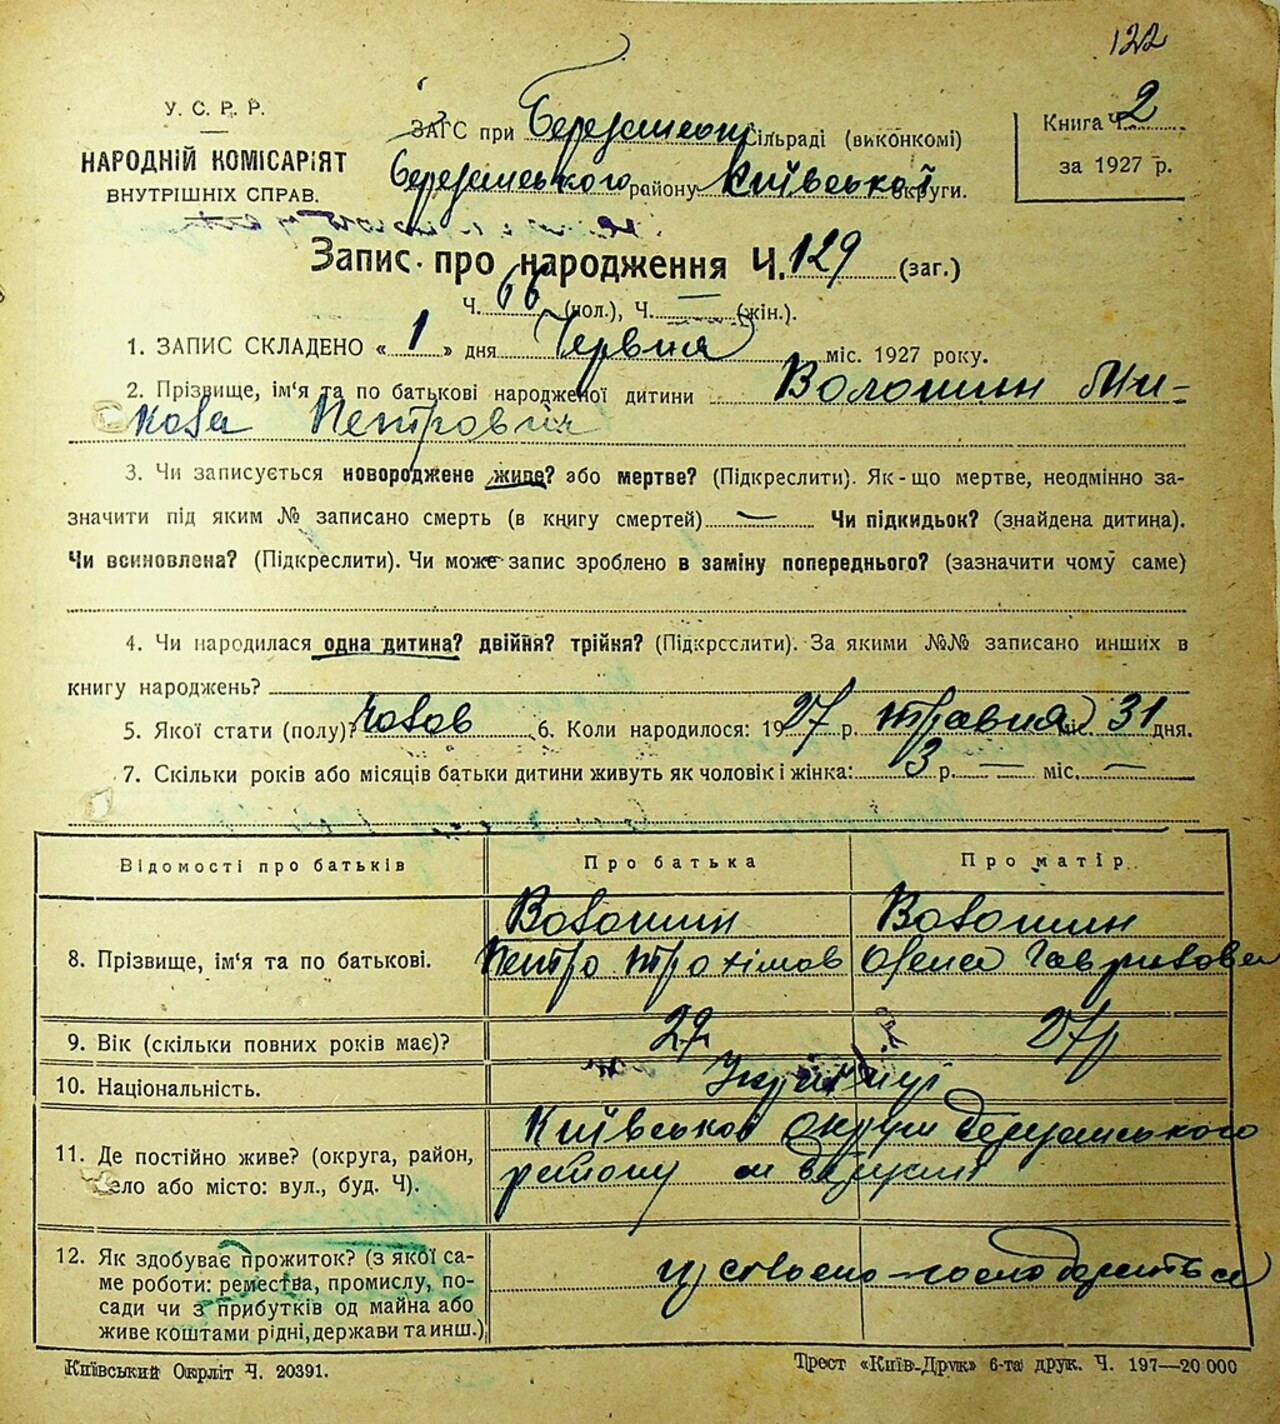 122
У. С. Р. Р.
НАРОДНІЙ КОМІСАРІЯТ
ВНУТРІШНІХ СПРАВ.
ЗАГС при Березанській сільраді (виконкомі)
Березанського району Київської округи.
Книга Ч. 2
за 1927 р.
Запис про народження Ч. 129 (заг.)
Ч. 66 (пол.), Ч. — (жін.).
1. ЗАПИС СКЛАДЕНО « 1 » дня Червня міс. 1927 року.
2. Прізвище, ім'я та по батькові народженої дитини Волошин Ми-
кола Петрович
3. Чи записується новороджене живе? або мертве? (Підкреслити). Як-що мертве, неодмінно за-
значити під яким № записано смерть (в книгу смертей) — Чи підкидьок? (знайдена дитина).
Чи всиновлена? (Підкреслити). Чи може запис зроблено в заміну попереднього? (зазначити чому саме)
4. Чи народилася одна дитина? двійня? трійня? (Підкреслити). За якими №№ записано инших в
книгу народжень?
5. Якої стати (полу)? чолов 6. Коли народилося: 1927 р. травня міс. 31 дня.
7. Скільки років або місяців батьки дитини живуть як чоловік і жінка: 3 р. — міс. —
Відомості про батьків Про батька Про матір
Волошин Волошин
8. Прізвище, ім'я та по батькові. Петро Трохимов Олена Гаврилова
9. Вік (скільки повних років має)? 27р
10. Національність. Українці
Київської округи Березанського
11. Де постійно живе? (округа, район, району
село або місто: вул., буд. Ч).
12. Як здобуває прожиток? (з якої са-
ме роботи: ремества, промислу, по-
сади чи з прибутків од майна або
живе коштами рідні, держави та инш.)
Київський Окрліт Ч. 20391.
Трест «Київ-Друк» 6-та друк. Ч. 197—20 000